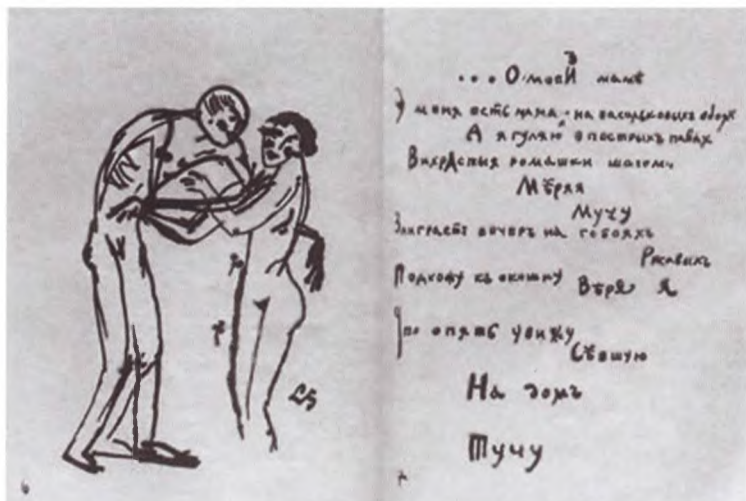 ... О моей мамѣ
У меня есть мама на васильковыхъ обоях
А я гуляю в пестрыхъ павах
Вихрастыя ромашки шагом
Мѣряя
Мучу
Заиграетъ вечеръ на гобояхъ
Ржавыхъ
Подхожу къ окошку Вѣря я
Что опять увижу
Сѣвшую
На домъ
Тучу
LS
6
7